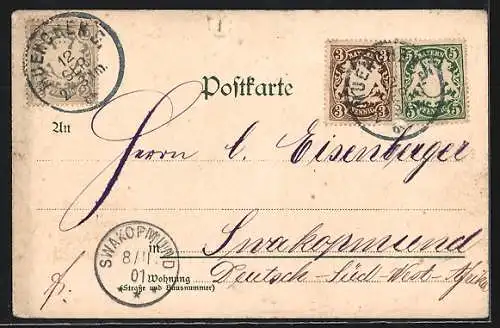 12
SEP.
3 BAYERN 3
3 PFENNIG 3
BAYERN 5
5 PFENNIG 5
Postkarte
An
Herrn C. Eisenberger
in
Swakopmund
Deutsch-Süd-West-Afrika
SWAKOPMUND
8/11
01
Wohnung
(Straße und Hausnummer)